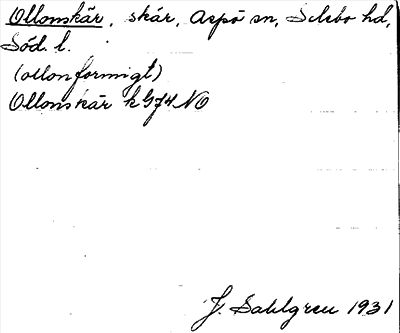 Ollonskär, skär, Aspö sn, Selebo hd,
Söd. l.
(ollonformigt)
Ollonskär k G74 NO
J. Sahlgren 1931